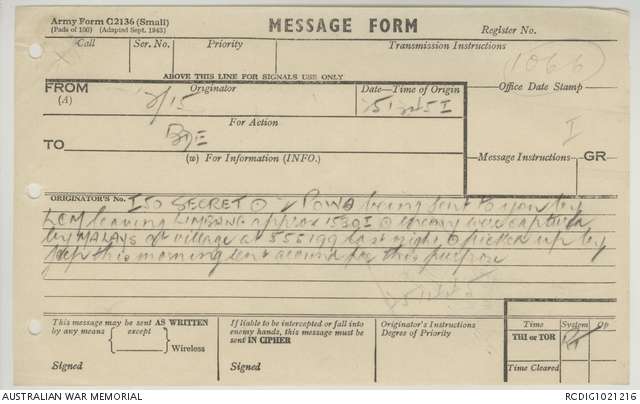 Army Form C2136 (Small)
(Pads of 100) (Adapted Sept. 1943)
MESSAGE FORM
Register No.
Call Ser. No. Priority Transmission Instructions
1066
ABOVE THIS LINE FOR SIGNALS USE ONLY
FROM
(A)
Originator
Date—Time of Origin
Office Date Stamp
2/15
For Action
TO
Bde
I
(w) For Information (INFO.)
Message Instructions GR
ORIGINATOR'S No. I 50 SECRET being sent to you by
LCM leaving LIMBANG approx 1530I enemy were captured
by MALAYS at village at 556199 last night picked up by
this morning sent around for this purpose
This message may be sent AS WRITTEN
by any means except
Wireless
Signed
If liable to be intercepted or fall into
enemy hands, this message must be
sent IN CIPHER
Signed
Originator's Instructions
Degree of Priority
Time System Op
THI or TOR
Time Cleared
AUSTRALIAN WAR MEMORIAL
RCDIG1021216